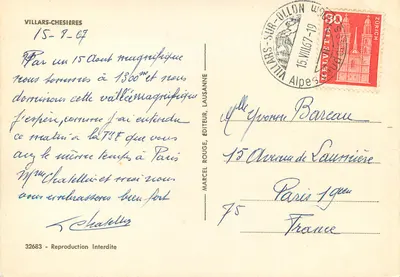 VILLARS-CHESIÈRES
15-8-67
Par un 15 Aout magnifique
nous sommes à 1300m et nous
dominons cette vallée magnifique
j'espère, j'ai entendu
ce matin à la que vous
avez le même temps à Paris
Mme Chatellin et moi nous
vous embrassons bien fort
Chatellin
32683 - Reproduction Interdite
MARCEL ROUGE, EDITEUR, LAUSANNE
VILLARS-SUR-OLLON
15.VIII.67-19
Alpes
30
HELVETIA
ZÜRICH
Mlle Yvonne Bareau
15 Avenue de Laumière
Paris 19em
75
France